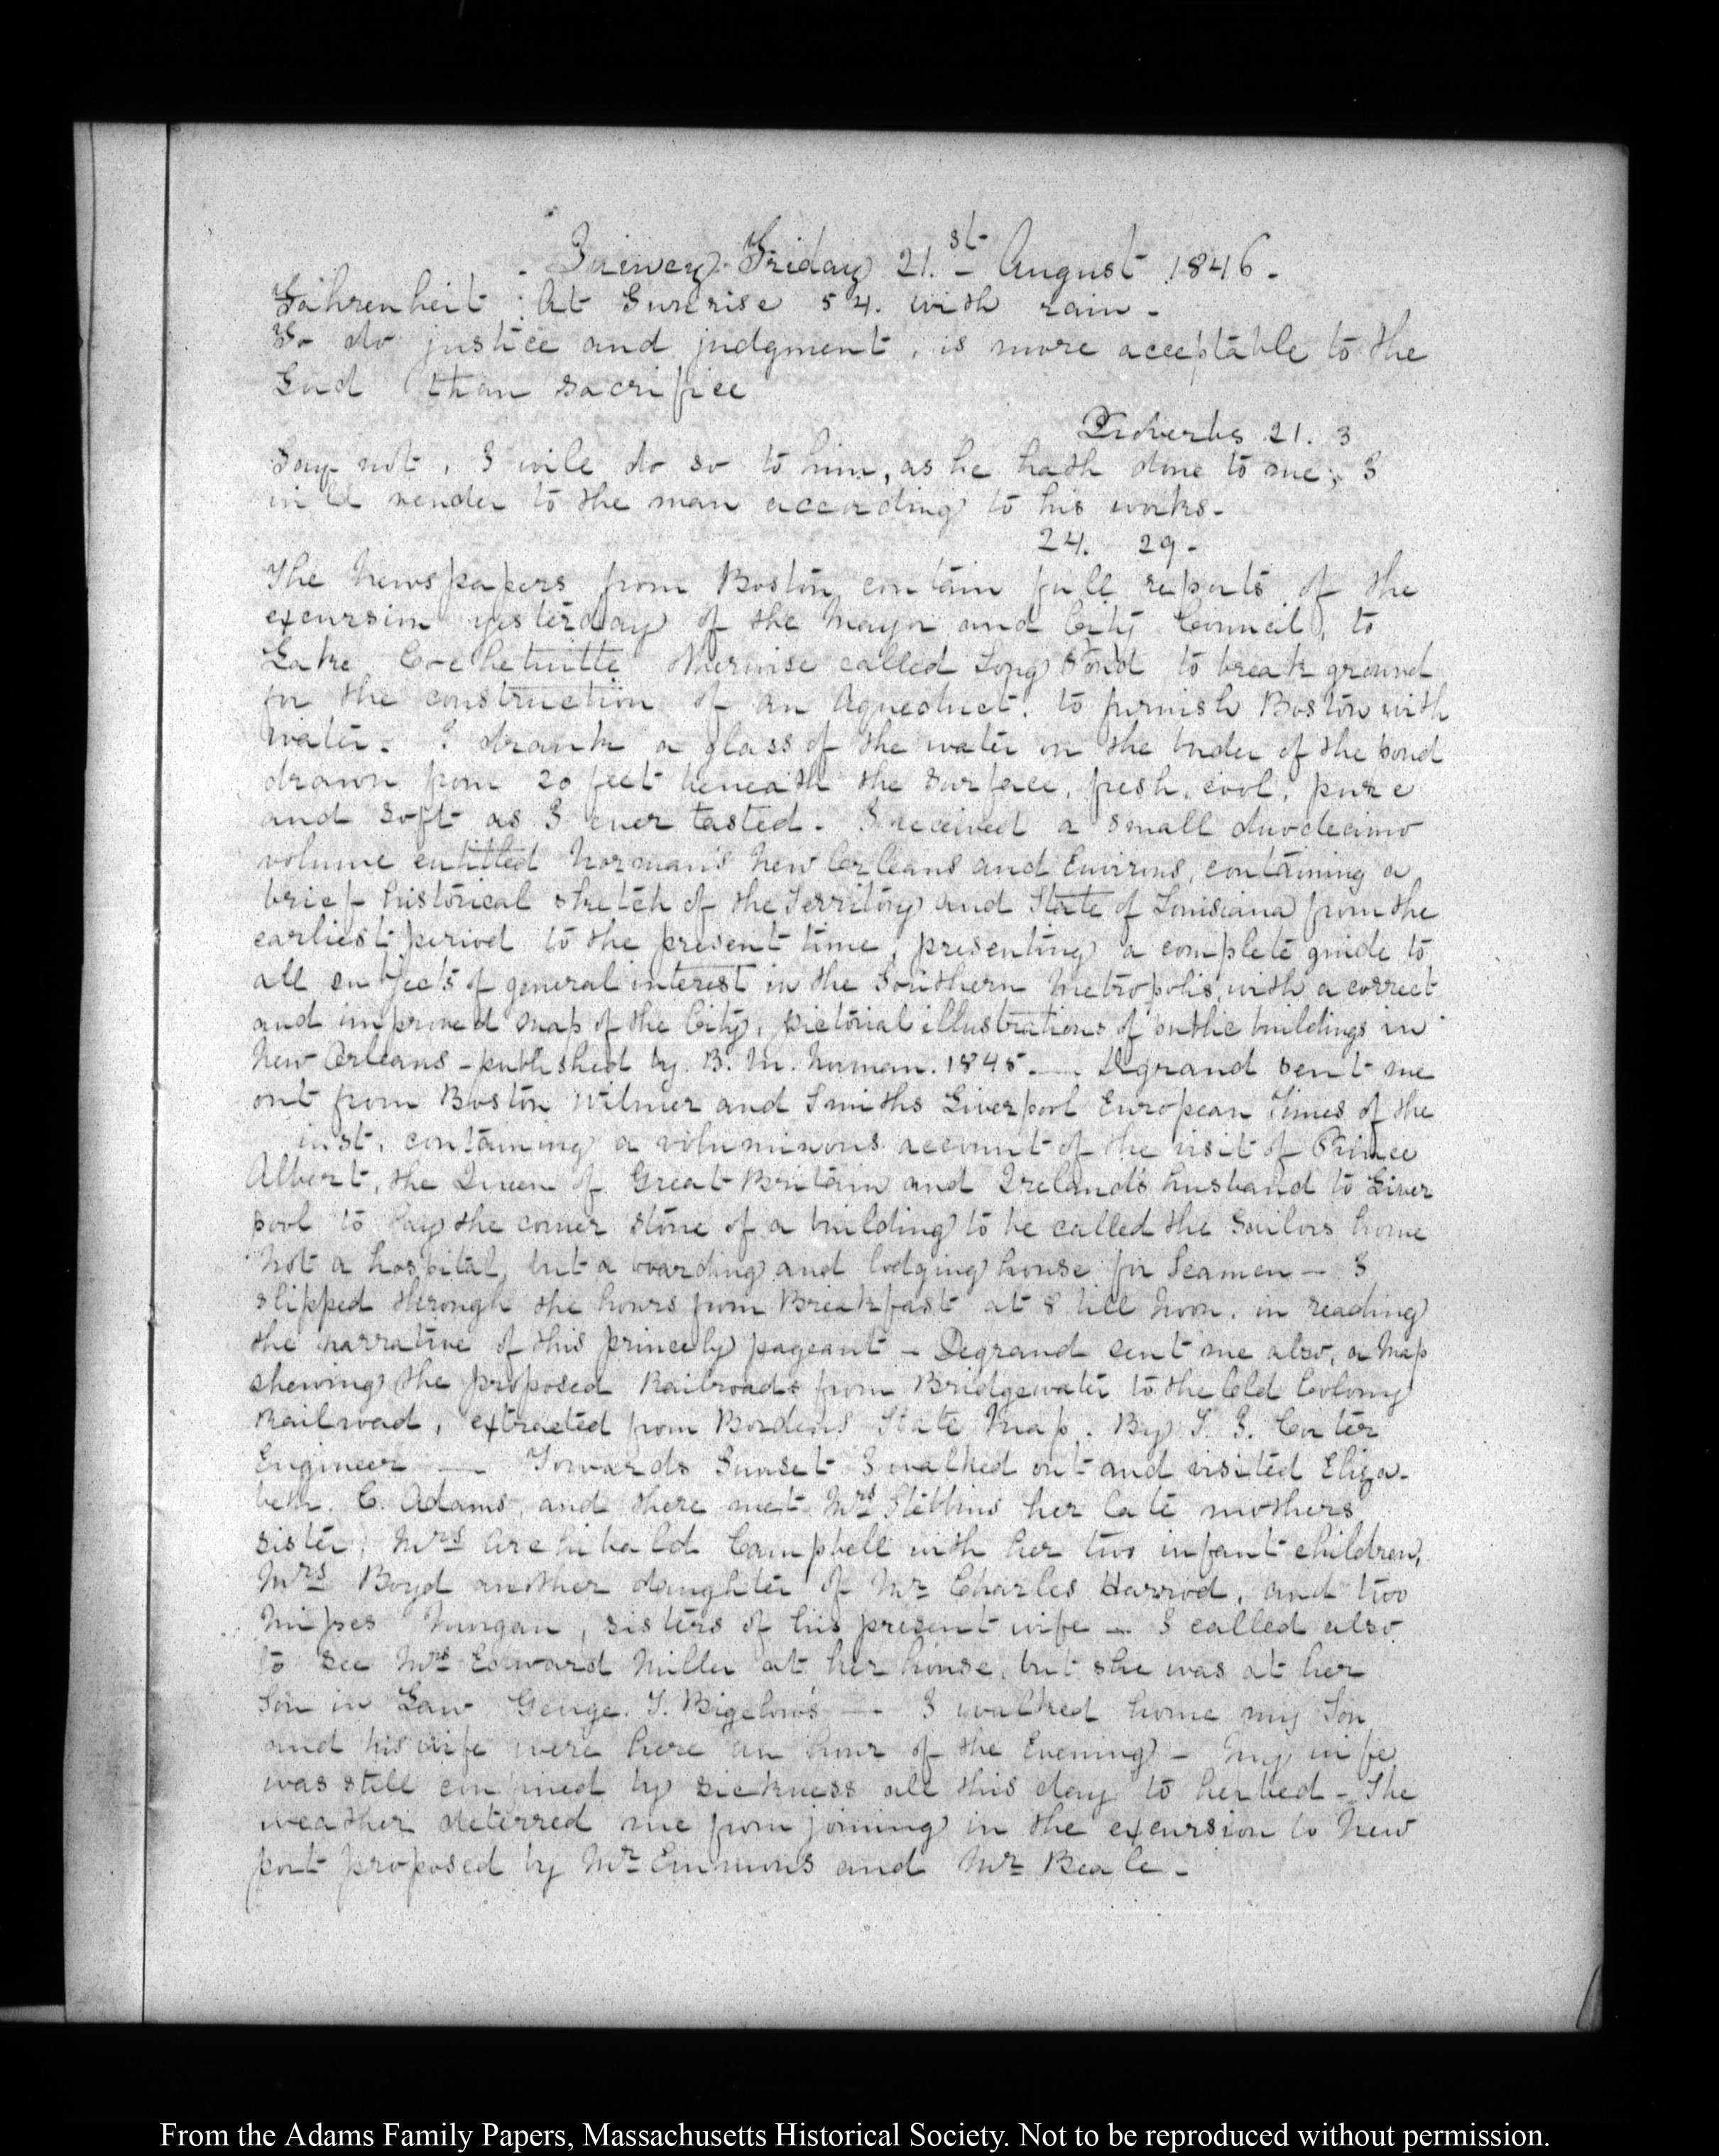 Quincy. Friday 21.st August 1846.
Fahrenheit: At Sunrise 54. with rain.
To do justice and judgment, is more acceptable to the
Lord than sacrifice
Proverbs 21. 3
Say not, I will do so to him, as he hath done to me; I
will render to the man according to his works.
24. 29.
The Newspapers from Boston contain full reports of the
excursion yesterday of the Mayor and City Council, to
Lake Cochetuitte otherwise called Long Pond to break ground
for the construction of an Aqueduct. to furnish Boston with
water. I drank a glass of the water on the border of the pond
drawn from 20 feet beneath the surface, fresh, cool, pure
and soft as I ever tasted. I received a small duodecimo
volume entitled Norman's New Orleans and Environs, containing a
brief historical sketch of the Territory and State of Louisiana from the
earliest period to the present time, presenting a complete guide to
all subjects of general interest in the Southern Metropolis, with a correct
and improved map of the City, pictorial illustrations of public buildings in
New Orleans - published by B. M. Norman. 1845. — Degrand sent me
out from Boston Wilmer and Smiths Liverpool European Times of the
inst. containing a voluminous account of the visit of Prince
Albert, the Queen of Great Britain and Ireland's husband to Liver
pool to lay the corner stone of a building to be called the Sailors home
not a hospital, but a boarding and lodging house for Seamen — I
slipped through the hours from Breakfast at 8 till Noon, in reading
the narrative of this princely pageant - Degrand sent me also, a Map
shewing the proposed Railroads from Bridgewater to the Old Colony
Railroad, extracted from Bordens State Map. By S. G. Carter
Engineer — Towards Sunset I walked out and visited Eliza-
beth. C. Adams, and there met Mrs Stebbins her late mothers
sister, Mrs Archibald Campbell with her two infant children,
Mrs Boyd another daughter of Mr Charles Harrod, and two
Misses Morgan, sisters of his present wife — I called also
to see Mrs Edward Miller at her house, but she was at her
Son in Law George. T. Bigelow's — I walked home my Son
and his wife were here an hour of the Evening - My wife
was still confined by sickness all this day to her bed - The
weather deterred me from joining in the excursion to New
port proposed by Mr Emmons and Mr Beale.
From the Adams Family Papers, Massachusetts Historical Society. Not to be reproduced without permission.